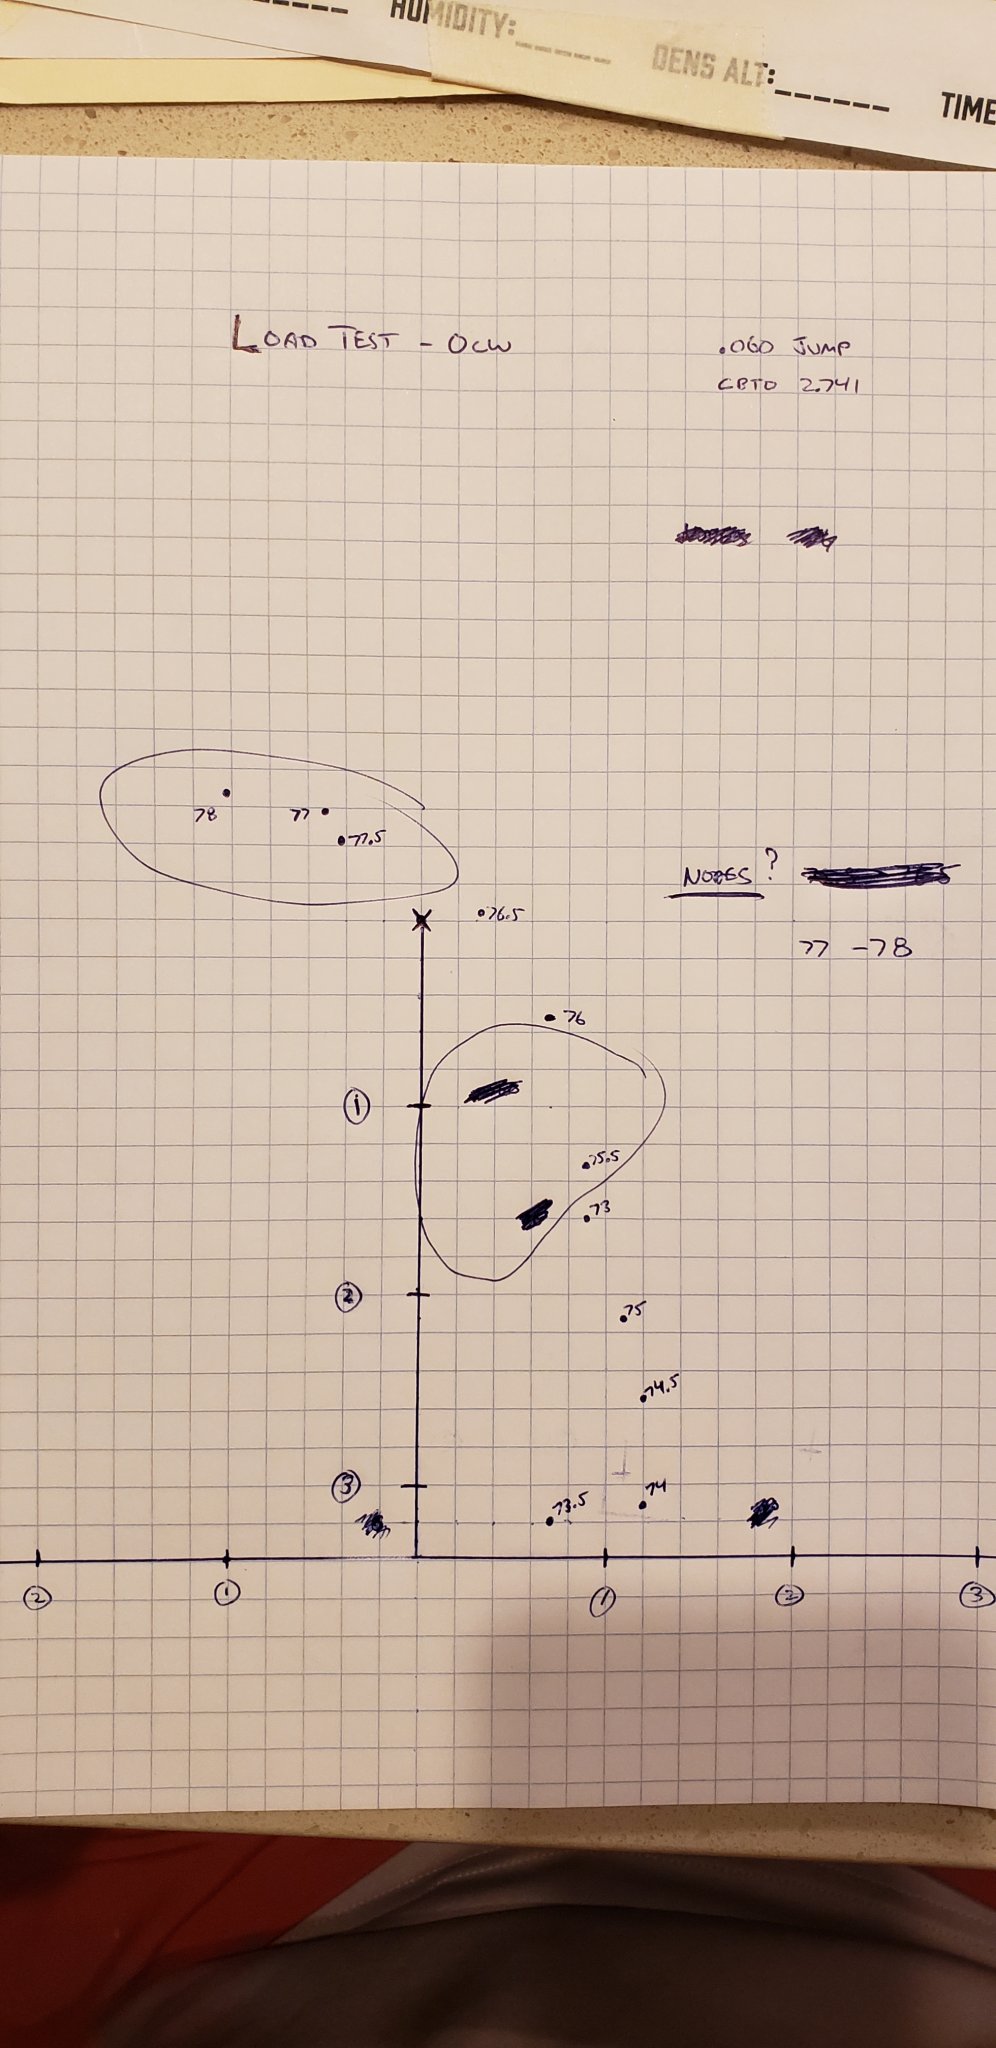 HUMIDITY:______
DENS ALT:______
TIME
LOAD TEST - OCW
.060 JUMP
CBTO 2.741
78
77
77.5
NODES?
76.5
77 - 78
76
1
75.5
73
2
75
74.5
3
74
73.5
2
1
1
2
3